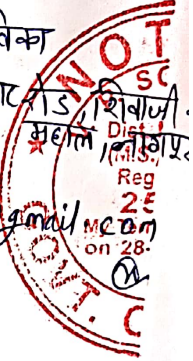 विका
ाट रोड, शिवाजी
महाल, नागपूर
gmail.com
NOT
SC
Dist
(M.S.)
Reg
25
on 28-
GOVT. C